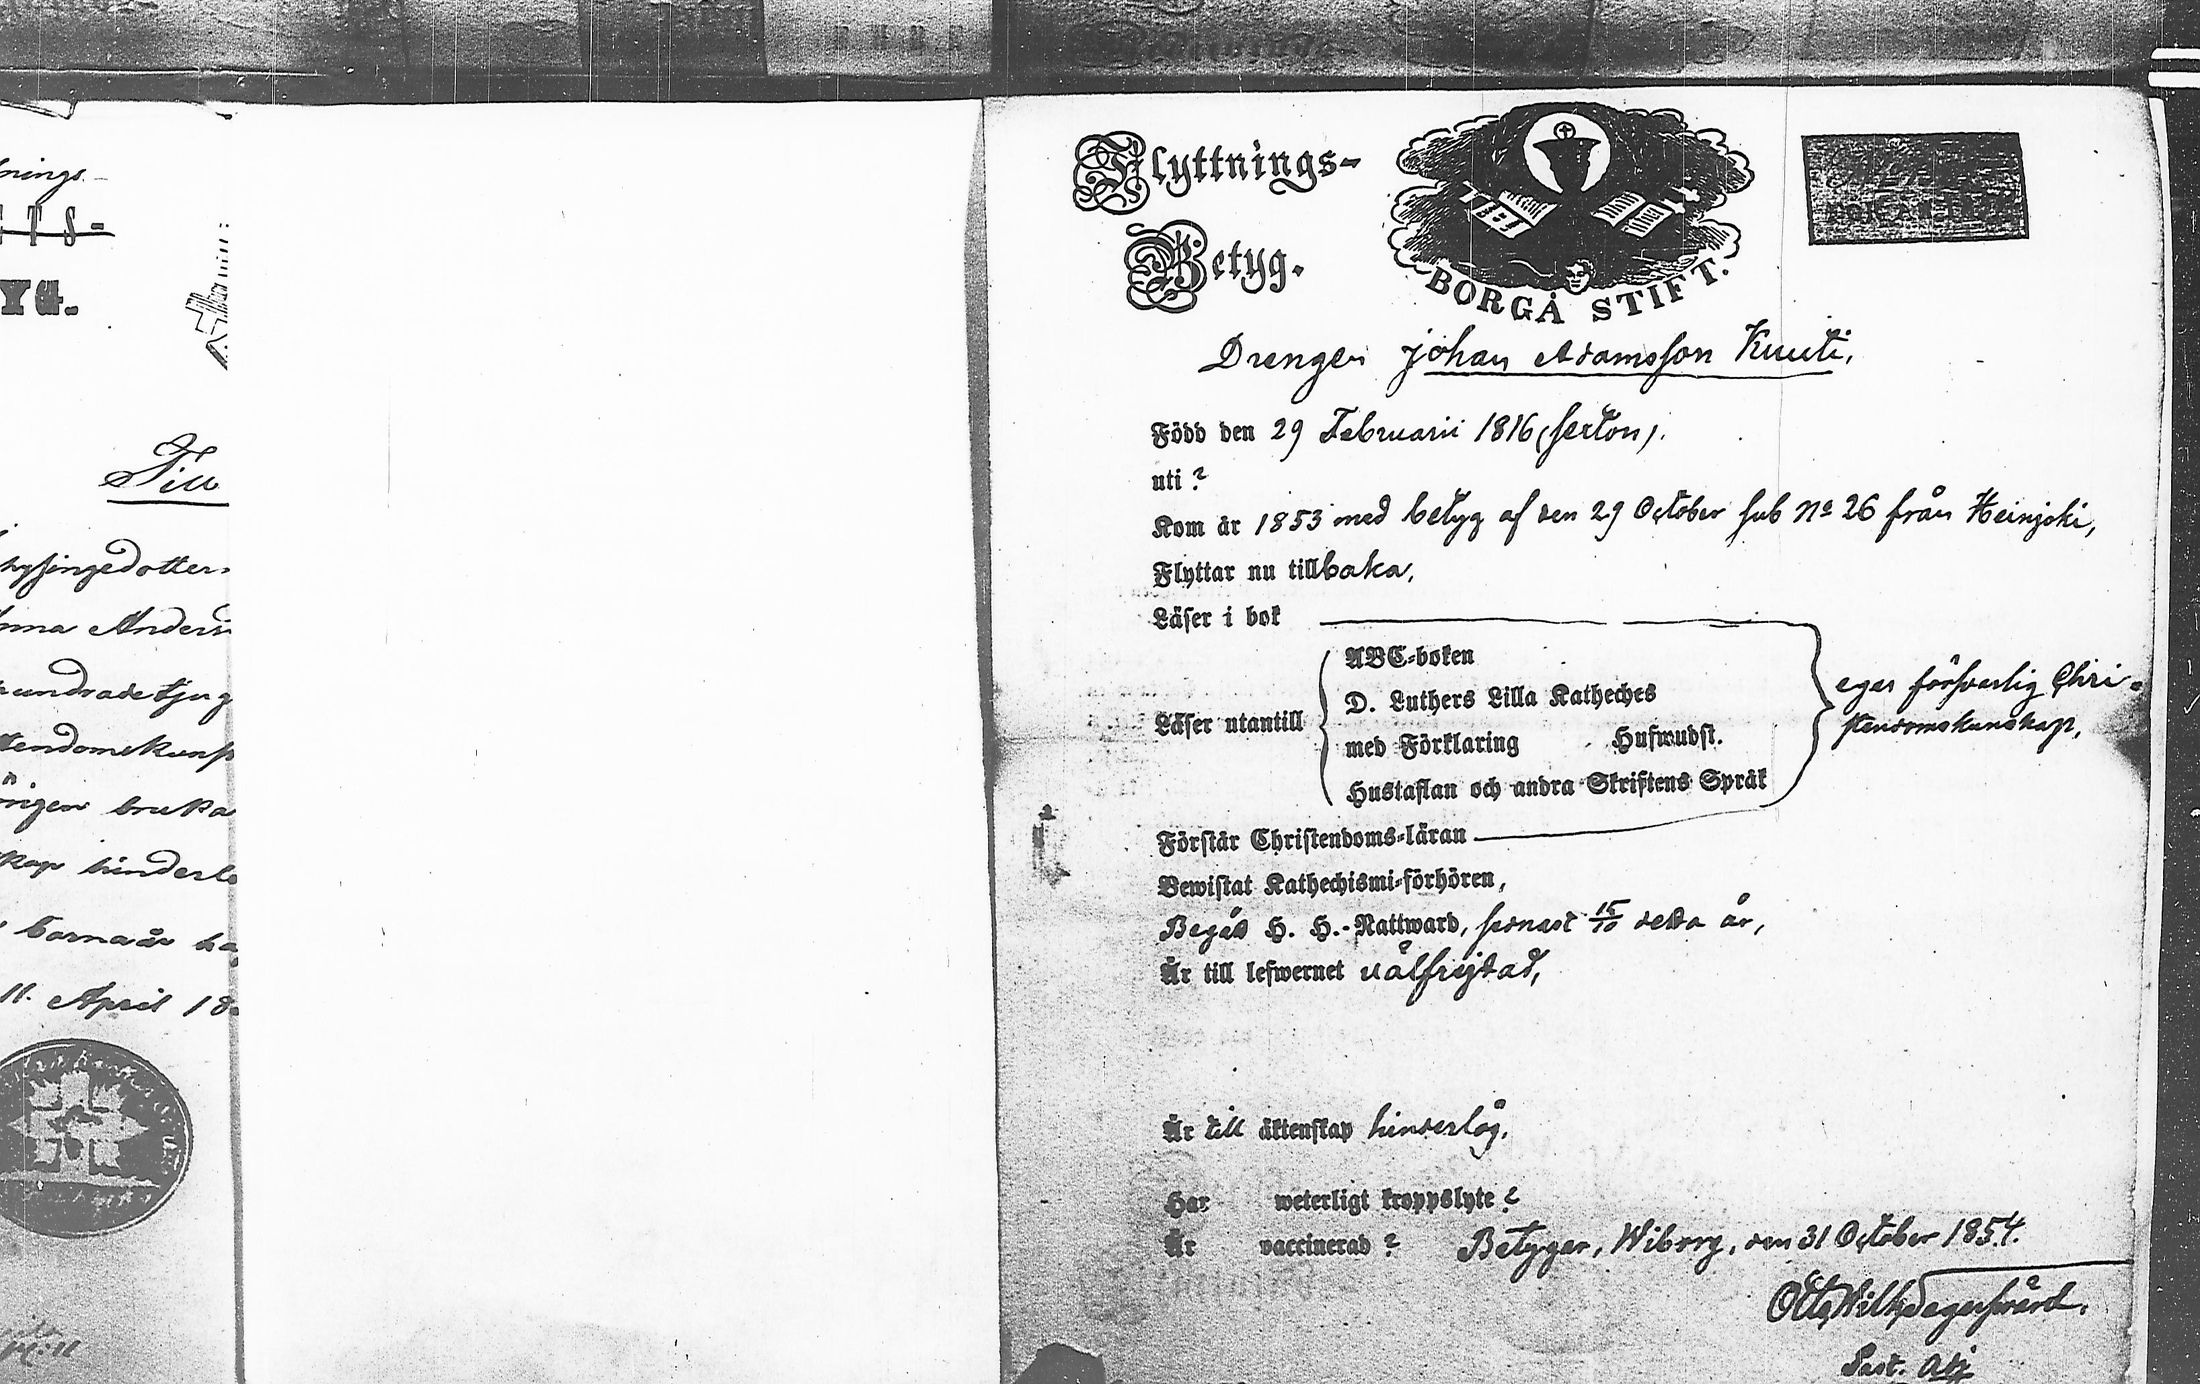 nings-
TS-
YG.
Till
hysingedotter
nna Anders
hundrade tjug
tendomskunsk
örigen bruka
skap hinderlö
barnaår ha
11. April 18
Flyttnings-
Betyg.
BORGÅ STIFT.
Drengen Johan Adamsson Kuuti,
Född den 29 Februarii 1816 (sexton).
uti ?
Kom år 1853 med betyg af den 29 October sub No 26 från Heinjoki,
Flyttar nu tillbaka,
Läser i bok
ABC-boken
D. Luthers Lilla Katheches
Läser utantill
med Förklaring Hufwudst.
Hustaflan och andra Skriftens Språk
eger försvarlig Chri-
stendomskunskap,
Förstår Christendoms-läran
Bewistat Kathechismi-förhören,
Begått H. H.-Nattward, sednast 15/10 detta år,
Är till lefwernet välfrejdad,
Är till äktenskap hinderlös.
Har weterligt kroppslyte ?
Är vaccinerad ? Betygar, Wiborg, den 31 October 1854.
Otto Wilh Segersvärd.
Past. Adj